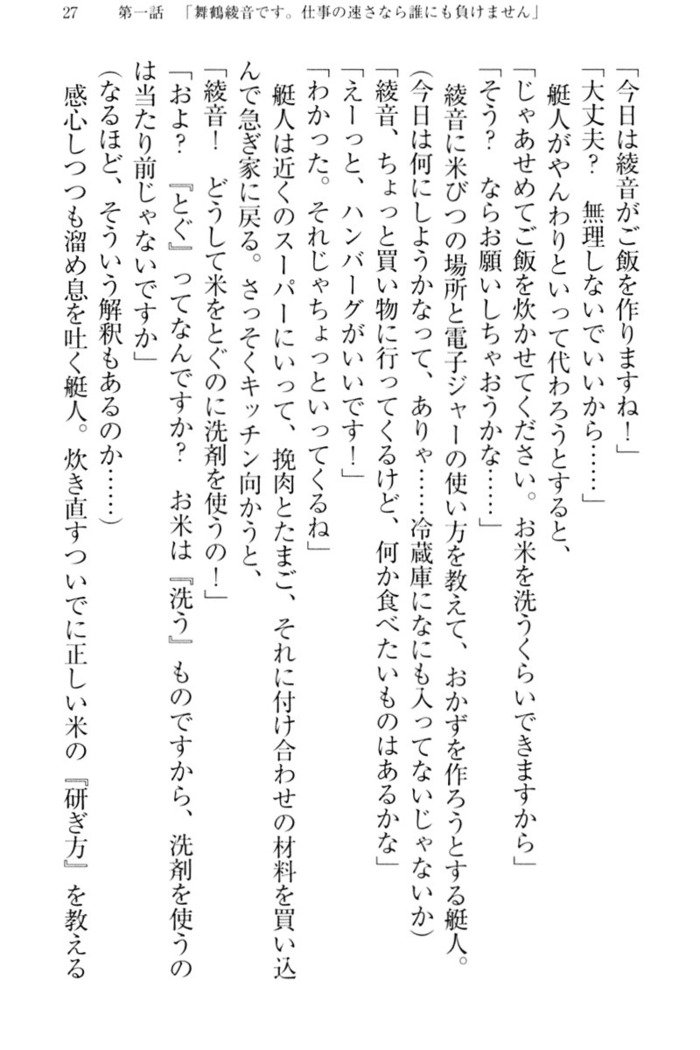 27　第一話　「舞鶴綾音です。仕事の速さなら誰にも負けません」
「今日は綾音がご飯を作りますね！」
「大丈夫？　無理しないでいいから……」
　艇人がやんわりといって代わろうとすると、
「じゃあせめてご飯を炊かせてください。お米を洗うくらいできますから」
「そう？　ならお願いしちゃおうかな……」
　綾音に米びつの場所と電子ジャーの使い方を教えて、おかずを作ろうとする艇人。
（今日は何にしようかなって、ありゃ……冷蔵庫になにも入ってないじゃないか）
「綾音、ちょっと買い物に行ってくるけど、何か食べたいものはあるかな」
「えーっと、ハンバーグがいいです！」
「わかった。それじゃちょっといってくるね」
　艇人は近くのスーパーにいって、挽肉とたまご、それに付け合わせの材料を買い込
んで急ぎ家に戻る。さっそくキッチン向かうと、
「綾音！　どうして米をとぐのに洗剤を使うの！」
「およ？　『とぐ』ってなんですか？　お米は『洗う』ものですから、洗剤を使うの
は当たり前じゃないですか」
（なるほど、そういう解釈もあるのか……）
　感心しつつも溜め息を吐く艇人。炊き直すついでに正しい米の『研ぎ方』を教える